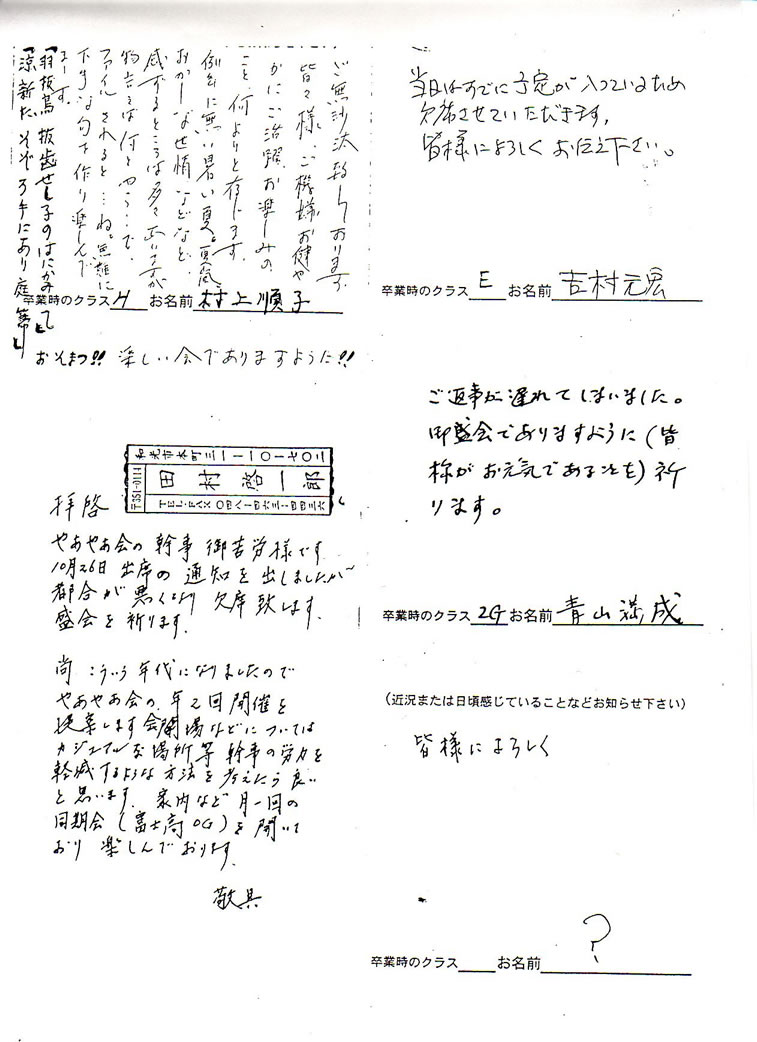 ご無沙汰致しております。
皆々様、ご機嫌お健や
かにご活躍、お楽しみの
こと、何よりと存じます。
例年に無い暑い夏。夏風
おかしなせ情などなど、
感ずるところは多々ございますが
物言えば何とやら…で、
ファイルされると…ね。無雑に
下手な句を作り楽しんで
まーす。
「羽抜鳥 抜歯せし子のはにかみて」
「涼新た そぞろ手にあり庭箒」
卒業時のクラス H お名前 村上順子
おそまつ!! 楽しい会でありますように!!
当日はすでに予定が入っているため
欠席させていただきます。
皆様によろしくお伝え下さい。
卒業時のクラス E お名前 吉村元宏
ご返事が遅れてしまいました。
御盛会でありますように(皆
様がお元気であることを)祈
ります。
卒業時のクラス 2G お名前 青山満成
和光市本町三一-一〇-七〇二
田村啓一郎
〒351-0114
TEL.FAX〇四八-四六三-四四三六
拝啓
やあやあ会の幹事 御苦労様です
10月26日 出席の通知を出しましたが
都合が悪くなり 欠席致します.
盛会を祈ります.
尚 こういう年代になりましたので
やあやあ会の 年2回開催を
提案します 会開場などについては
カジュアルな場所等 幹事の労力を
軽減するような方法を考えたら良い
と思います. 家内など月一回の
同期会(富士高OG)を開いて
おり 楽しんでおります.
敬具
(近況または日頃感じていることなどお知らせ下さい)
皆様によろしく
卒業時のクラス お名前 ?